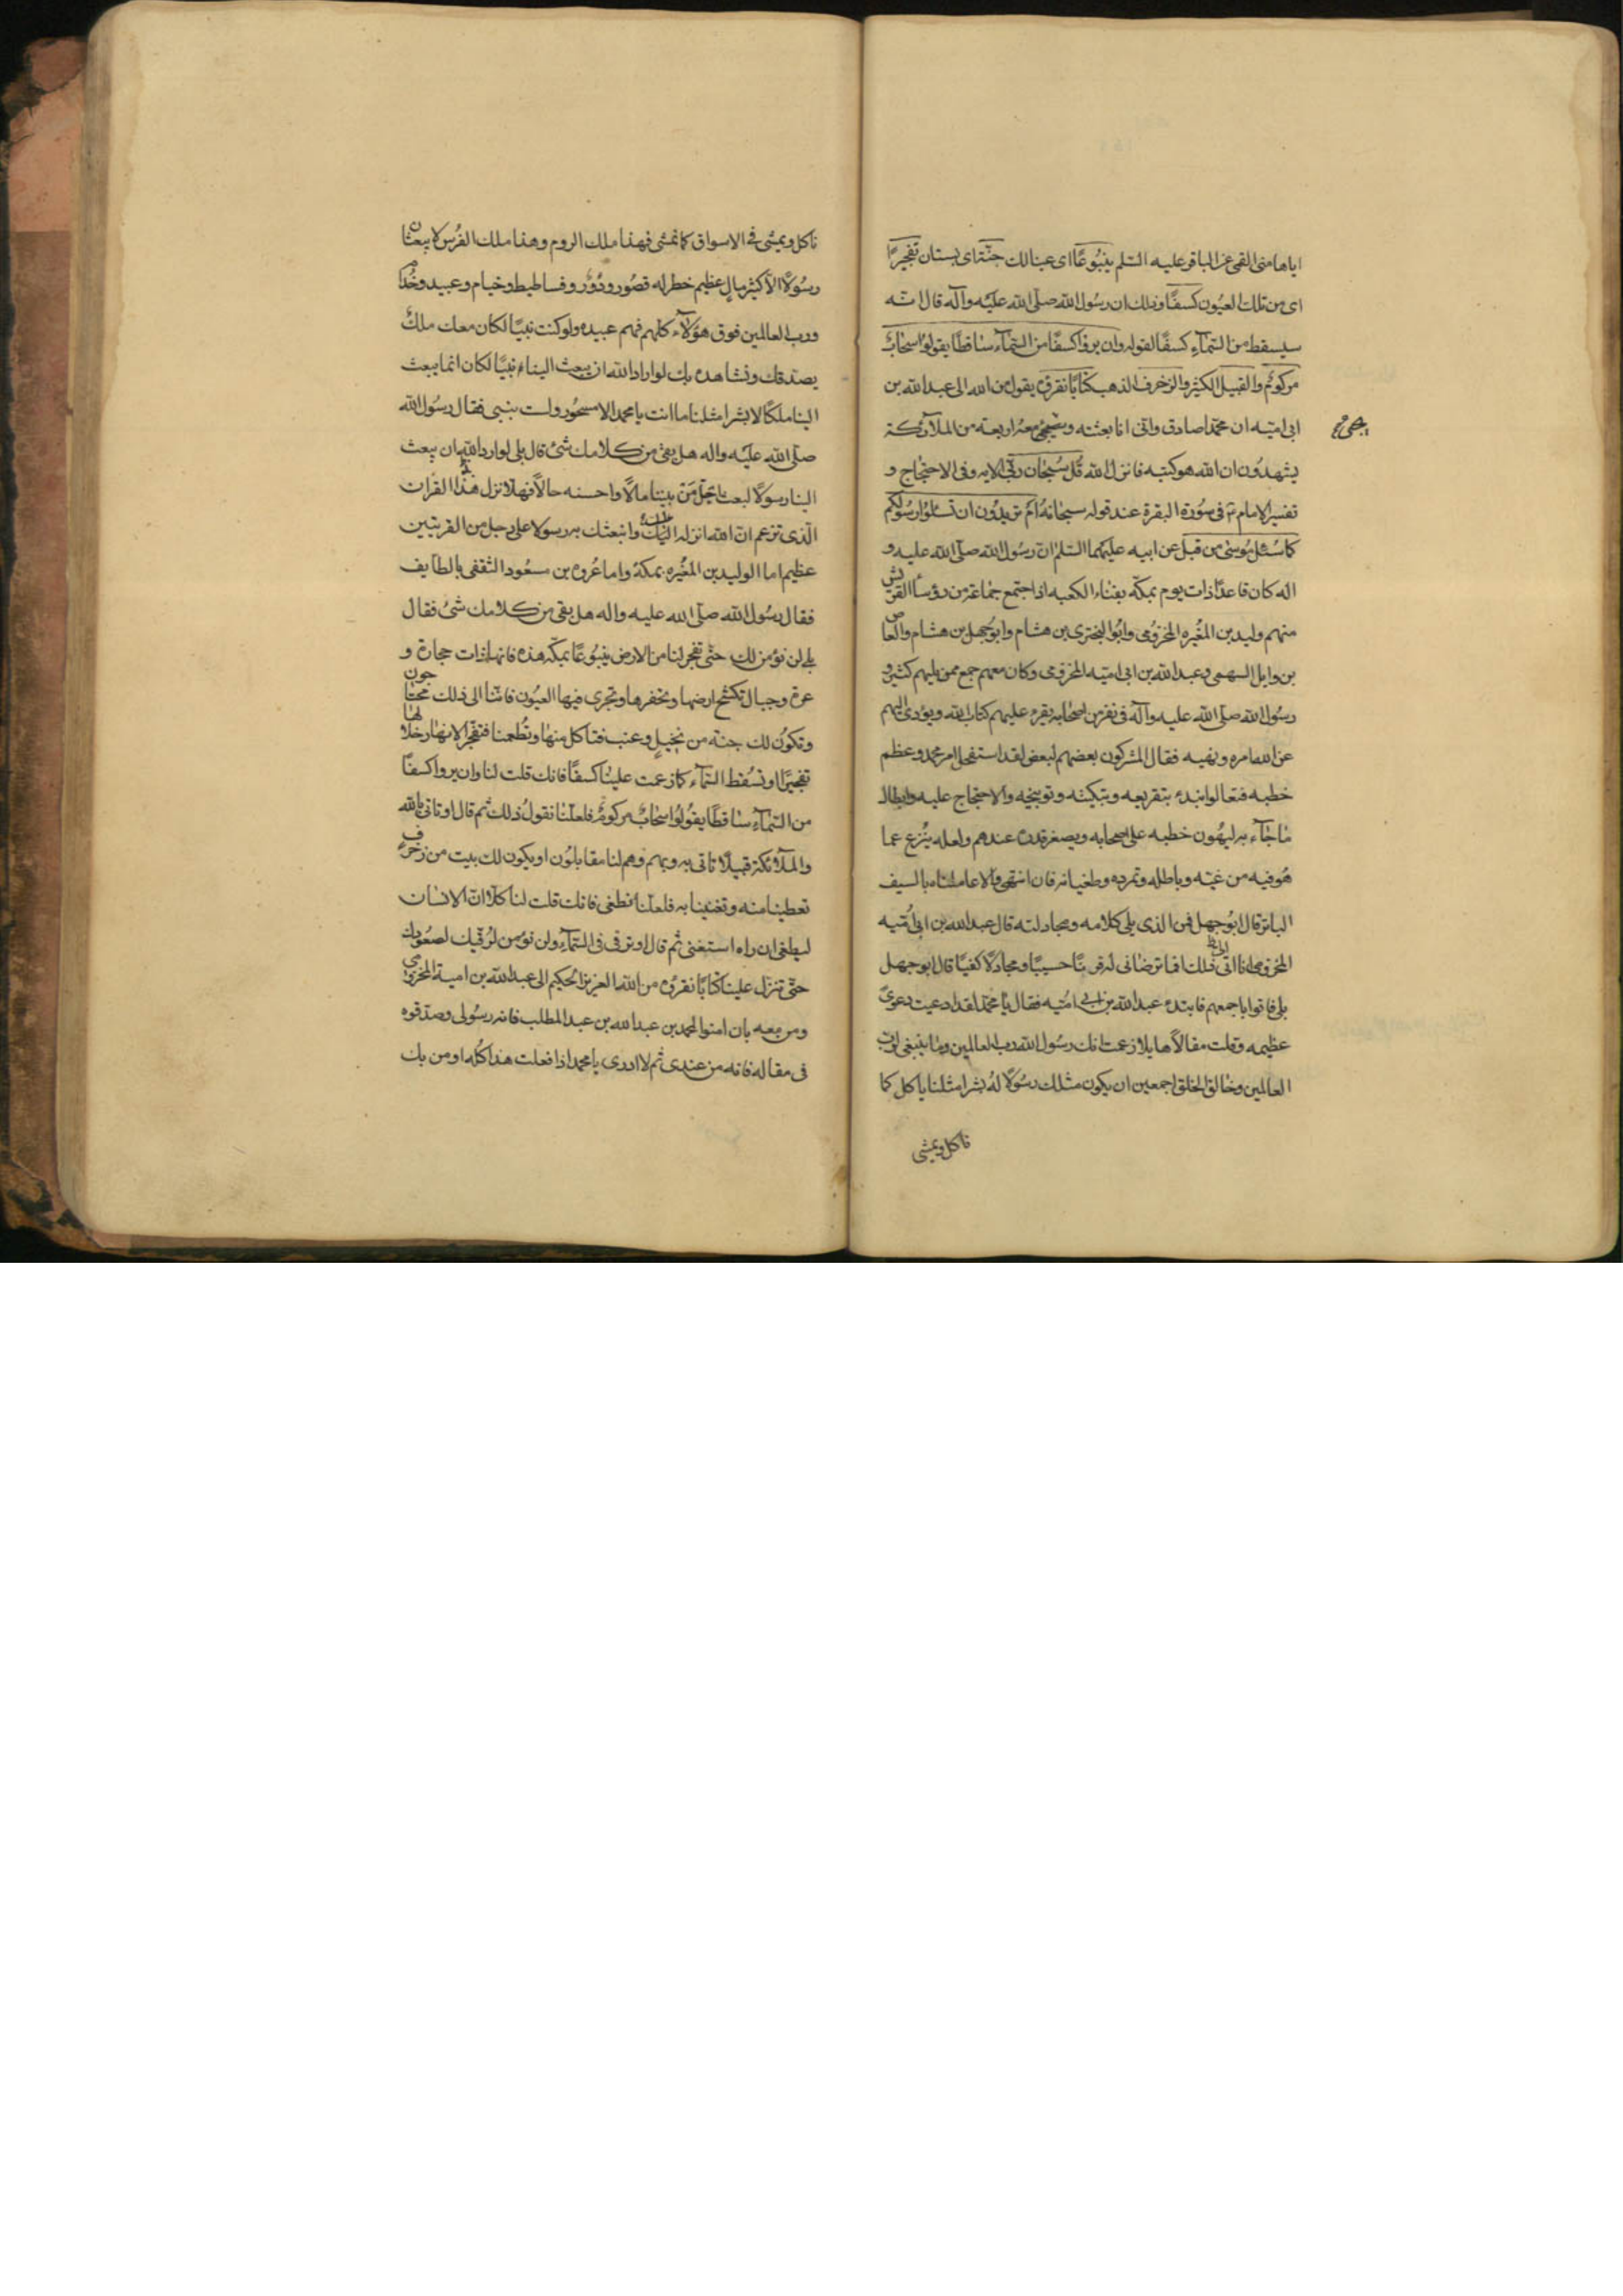 اياها منى القمى عن الباقر عليه السّلم ينبُوعًا اى عينا لك جنّة اى بستان تفجيرًا
اى من تلك العيُون كسفًا وذلك ان رسُول الله صلّى الله عليْه وآله قال انّه
سيسقط من السّمآءِ كسفًا لقوله وان يروا كسفًا من السّمآء ساقطًا يقولوُا سحابٌ
مركومٌ والقبيل الكثير والزخرف الذهب كتابًا نقرؤه يقول من الله الى عبد الله بن
ابى اميّه ان محمّدًا صادق وانى انا بعثته ويجيئ معهُ اربعة من الملآئكة
يجئ
يشهدُون ان الله هو كتبه فانزل الله قُل سُبحان ربّى الايه وفى الاحتجاج و
تفسير الامام ع فى سُورة البقرة عند قوله سبحانهُ اَم تريدُون ان تسئلوُا رسُولكم
كما سُئل مُوسىٰ من قبل عن ابيه عليهما السّلم انّ رسُول الله صلّى الله عليه و
اله كان قاعدًا ذات يوم بمكّة بفناء الكعبه اذا اجتمع جماعة من رؤسأ القريش
منهم وليد بن المغُيره المخزوُمى وابُو البخترى بن هشام وابوُ جهل بن هشام والعاص
بن وايل السهمى وعبد الله بن ابى اميّه المخزومى وكان معهم جمع ممن يليهم كثير و
رسُول الله صلّى الله عليه وآله فى نفر من اصحابه يقرء عليهم كتاب الله ويؤدى اليهم
عن الله امره ونهيه فقال المشركون بعضهم لبعض لقد استفحل امر محمد وعظم
خطبه فتعالوا نبدء بتقريعه وتبكيته وتوبيخه والاحتجاج عليه وابطال
ما جآء به ليهُون خطبه على اصحابه ويصغر قدره عندهم ولعله ينزع عما
هُو فيه من غيّه وباطله وتمرده وطغيانه فان انتهى والا عاملناه بالسيف
الباتر قال ابوُ جهل فمن الذى يلى كلامه ومجادلته قال عبد الله بن ابى اُميه
المخزومى انا الى ذلك افما ترضانى له قرنًا حسيبًا ومجادلًا كفيًا قال ابو جهل
بلى فاتوا باجمعهم فابتدء عبد الله بن ابى اميّه فقال يا محمّد لقد ادعيت دعوىً
عظيمه وقلت مقالًا هايلا زعمت انك رسُول الله رب العالمين وما ينبغى لرب
العالمين وخالق الخلق اجمعين ان يكون مثلك رسُولًا لهُ بشرا مثلنا ياكل كما
ناكل ويمشى
ناكل ويمشى فى الاسواق كما نمشى فهذا ملك الروم وهذا ملك الفُرس لا يبعثان
رسُولًا الّا كثير مال عظيم خطر له قصُور ودُوْر وفساطيط وخيام وعبيد وخُدّام
ورب العالمين فوق هؤلآء كلهم فهم عبيده ولو كنت نبيًا لكان معك ملكٌ
يصدّقك ونشاهده بل لو اراد الله ان يبعث الينا نبيًا لكان انما يبعث
الينا ملكًا لا بشرا مثلنا ما انت يا محمد الا مسحُور ولست بنبى فقال رسُول الله
صلّى الله عليْه واله هل بقى من كلامك شئ قال بلى لو اراد الله ان يبعث
الينا رسولًا لبعث اجلّ من بيننا مالًا واحسنه حالًا فهلّا نزل هذا القران
الّذى تزعم انّ الله انزله اليك وابتعثك به رسولا على رجل من القريتين
عظيم اما الوليد بن المغُيره بمكة واما عُروه بن مسعُود الثقفى بالطايف
فقال رسُول الله صلّى الله عليه واله هل بقى من كلامك شئ فقال
بلى لن نؤمن لك حتّى تفجر لنا من الارض ينبُوعًا بمكّة هذه فانها ذات حجارة و
عرة وجبال تكسْح ارضها وتحفرها وتجرى فيها العيُون فانّنا الى ذلك محتاجون
وتكون لك جنة من نخيل وعنب فتاكل منها وتُطعمنا فتفجّر الانهار خلالها
تفجيرًا او تسُقط السّمآء كما زعمت علينا كسفًا فانك قلت لنا وان يروا كسفًا
من السّمآءِ ساقطًا يقُولُوا سَحابٌ مركومٌ فلعلّنا نقولُ ذلك ثم قال او تاتى بالله
والملآئكة قبيلًا تاتى به وبهم وهم لنا مقابلُون او يكون لك بيت من زخرف
تعطينا منه وتغنينا به فلعلّنا نطغى فانك قلت لنا كلّا انّ الانسان
ليطغى ان راه استغنى ثم قال او ترقى فى السّمآءِ ولن نؤمن لرُقيك لصعُودك
حتّى تنزل علينا كتابًا نقرؤه من الله العزيز الحكيم الى عبد الله بن امية المخزومى
ومن معه بان امنوا لمحمد بن عبد الله بن عبد المطلب فانه رسُولى وصدّقوه
فى مقاله فانه من عندى ثم لا ادرى يا محمد اذا فعلت هذا كلّه اومن بك